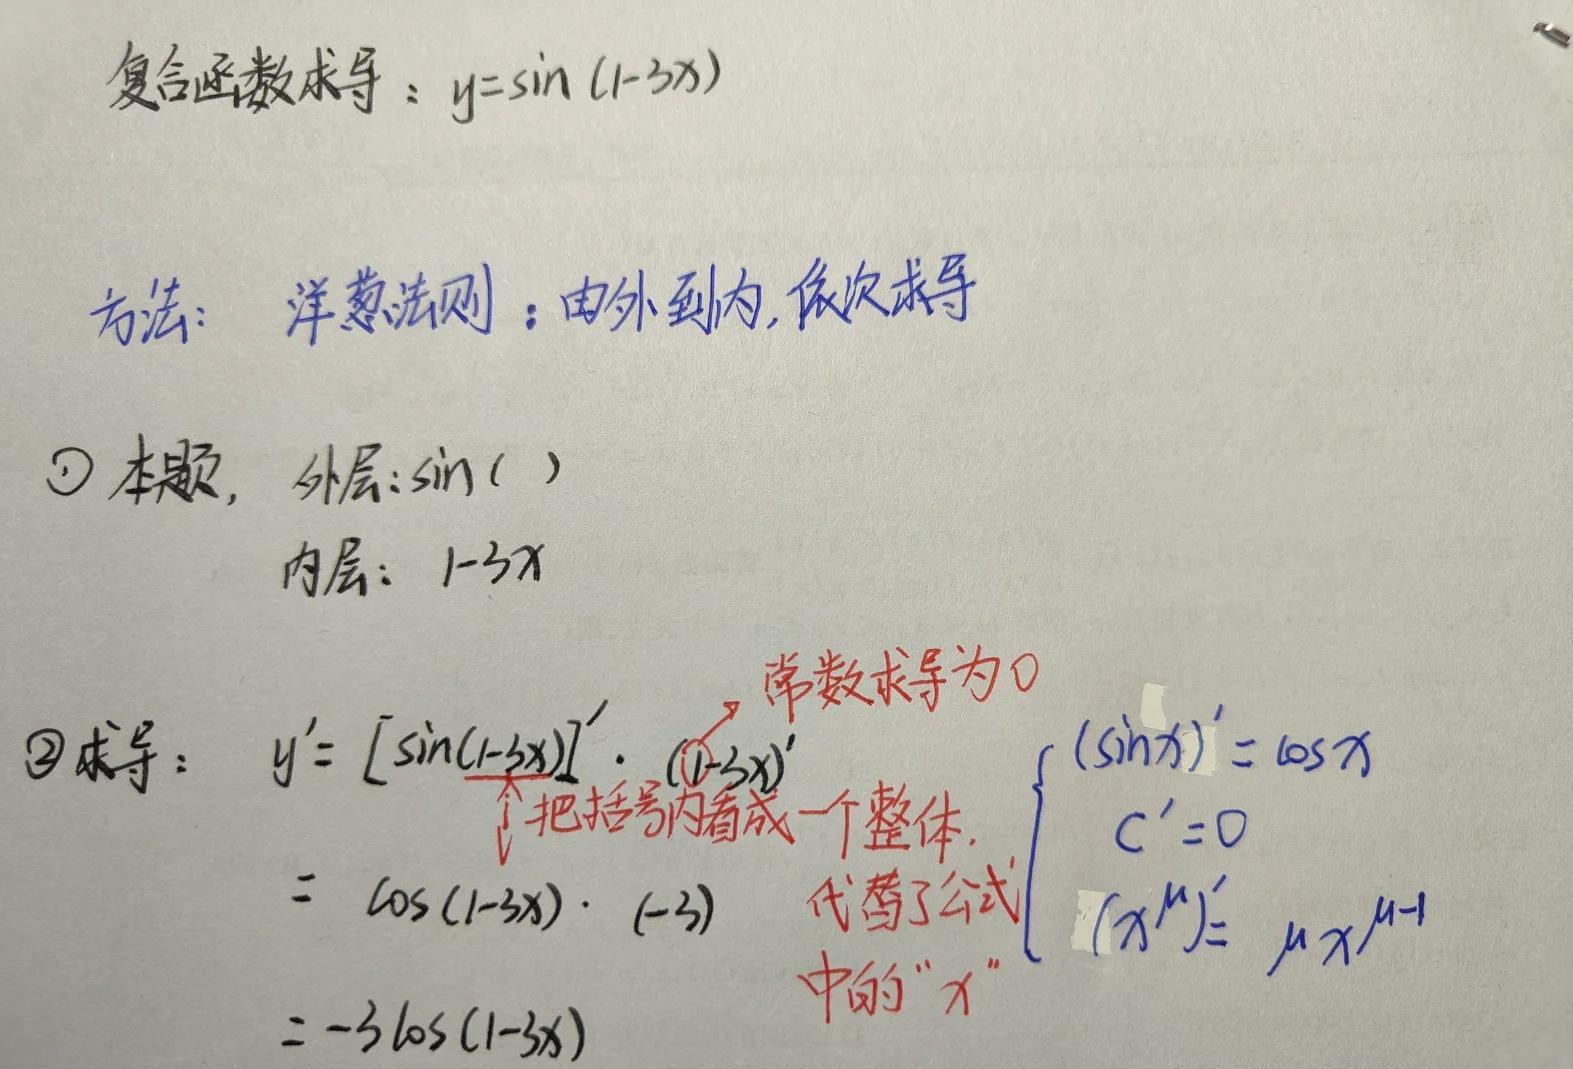 复合函数求导：y=sin(1-3x)
方法： 洋葱法则：由外到内，依次求导
① 本题， 外层：sin( )
内层： 1-3x
常数求导为0
② 求导： y′= [sin(1-3x)]′ · (1-3x)′
把括号内看成一个整体.
代替了公式
中的“x”
= cos(1-3x) · (-3)
= -3cos(1-3x)
(sinx)′ = cosx
C′=0
(x^μ)′= μx^μ-1